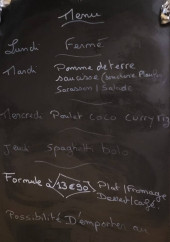 Menu
Lundi Fermé
Mardi Pomme de terre
saucisse /
Sarrasin / Salade
Mercredi Poulet coco curry riz
Jeudi spaghetti bolo
Formule à 13€90 Plat / Fromage
Dessert / café.
Possibilité D'emporter au